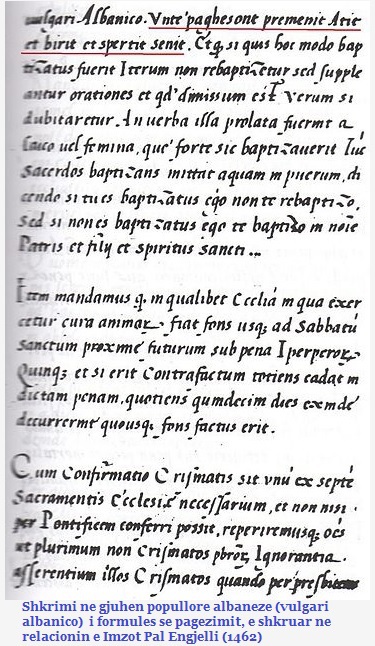 vulgari Albanico. Vnte' paghesont premenit Atit
et birit et spertit senit. Et q, si quis hoc modo bap
tizatus fuerit Iterum non rebaptizetur sed supple
antur orationes et qd' dimissum est Verum si
dubitaretur. An uerba illa prolata fuerint a
Laico uel femina, que' forte sic baptizauerit Tuc
Sacerdos baptizans mittat aquam in puerum, di
cendo si tu es baptizatus ego non te rebaptizo,
Sed si non es baptizatus ego te baptizo in noie
Patris et filij et Spiritus Sancti ...
Item mandamus q. in qualibet Ecclia in qua exer
cetur cura animar fiat fons usq, ad Sabbatu
Sanctum proxime futurum sub pena Iperperor
Quinq, et si erit Contrafactum totiens cadat in
dictam penam, quotiens quindecim dies exinde
decurrerint quousq, fons factus erit.
Cum Confirmatio Crismatis sit unu' ex septe'
Sacramentis Ecclesie necessarium, et non nisi
per Pontificem conferri possit, reperiremusq, oes
ut plurimum non Crismatos Ignorantia
asserentium illos Crismatos quando per presbiteros
Shkrimi ne gjuhen popullore albaneze (vulgari
albanico) i formules se pagezimit, e shkruar ne
relacionin e Imzot Pal Engjelli (1462)